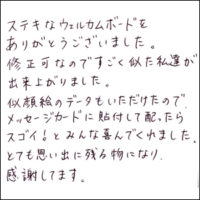 ステキなウェルカムボードを
ありがとうございました。
修正可なのですごく似た私達が
出来上がりました。
似顔絵のデータもいただけたので、
メッセージカードに貼付して配ったら
スゴイ!とみんな喜んでくれました。
とても思い出に残る物になり、
感謝してます。